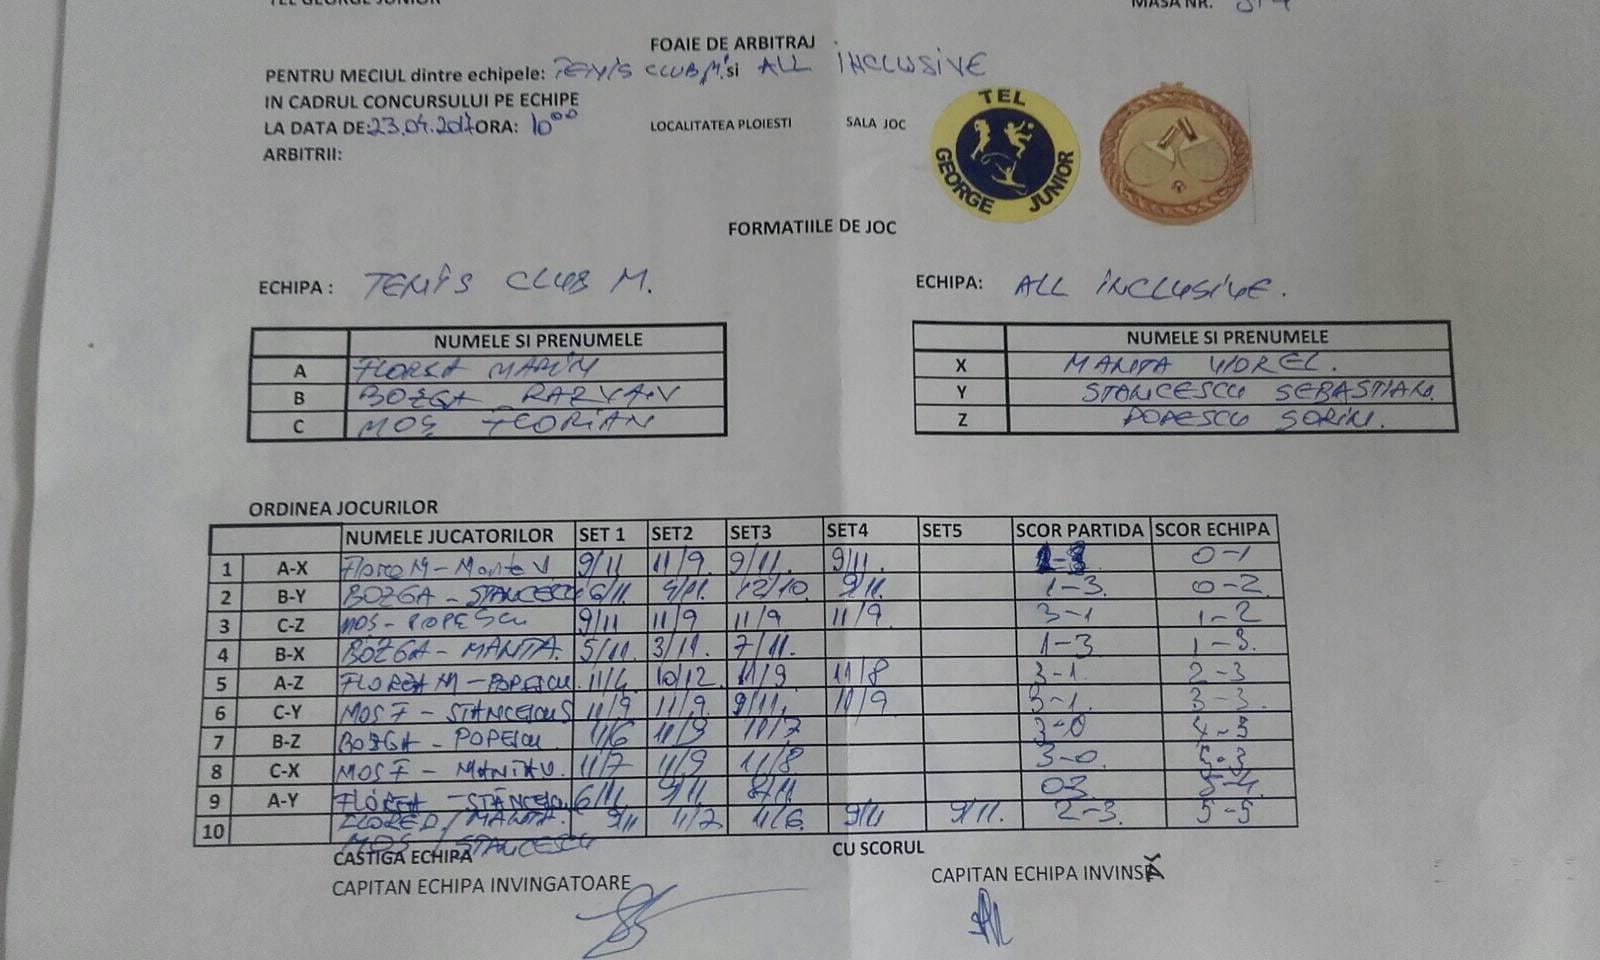 TEL GEORGE JUNIOR MASA NR.
FOAIE DE ARBITRAJ
PENTRU MECIUL dintre echipele: TENIS CLUB M. si ALL INCLUSIVE
IN CADRUL CONCURSULUI PE ECHIPE
LA DATA DE: 23.04.2017 ORA: 10⁰⁰ LOCALITATEA PLOIESTI SALA JOC
ARBITRII:
TEL GEORGE JUNIOR
FORMATIILE DE JOC
ECHIPA : TENIS CLUB M. ECHIPA: ALL INCLUSIVE.
NUMELE SI PRENUMELE NUMELE SI PRENUMELE
A FLOREA MARIN X MANTA VIOREL.
B BOZGA RAZVAN Y STANCESCU SEBASTIAN.
C MOȘ FLORIAN Z POPESCU SORIN.
ORDINEA JOCURILOR
NUMELE JUCATORILOR SET 1 SET2 SET3 SET4 SET5 SCOR PARTIDA SCOR ECHIPA
1 A-X Florea M - Manta V 9/11 11/9 9/11. 9/11. 1-3. 0-1
2 B-Y BOZGA - STANCESCU 6/11. 4/11. 12/10. 9/11. 1-3. 0-2
3 C-Z MOȘ - POPESCU 9/11 11/9 11/9 11/9 3-1 1-2
4 B-X BOZGA - MANTA. 5/11. 3/11. 7/11. 1-3 1-3.
5 A-Z FLOREA M - POPESCU. 11/4 10/12. 11/9 11/8 3-1. 2-3
6 C-Y MOS F - STANCESCU S 11/9 11/9. 9/11. 11/9 3-1. 3-3.
7 B-Z BOZGA - POPESCU 11/6 11/9 11/7 3-0 4-3
8 C-X MOS F - MANTA V. 11/7 11/9 11/8 3-0. 5-3
9 A-Y FLOREA - STANCESCU 6/11 9/11 8/11 03. 5-4.
10 FLOREA / MANTA. 9/11 11/7 11/6 9/11 9/11. 2-3. 5-5
MOS / STANCESCU
CASTIGA ECHIPA CU SCORUL
CAPITAN ECHIPA INVINGATOARE CAPITAN ECHIPA INVINSĂ